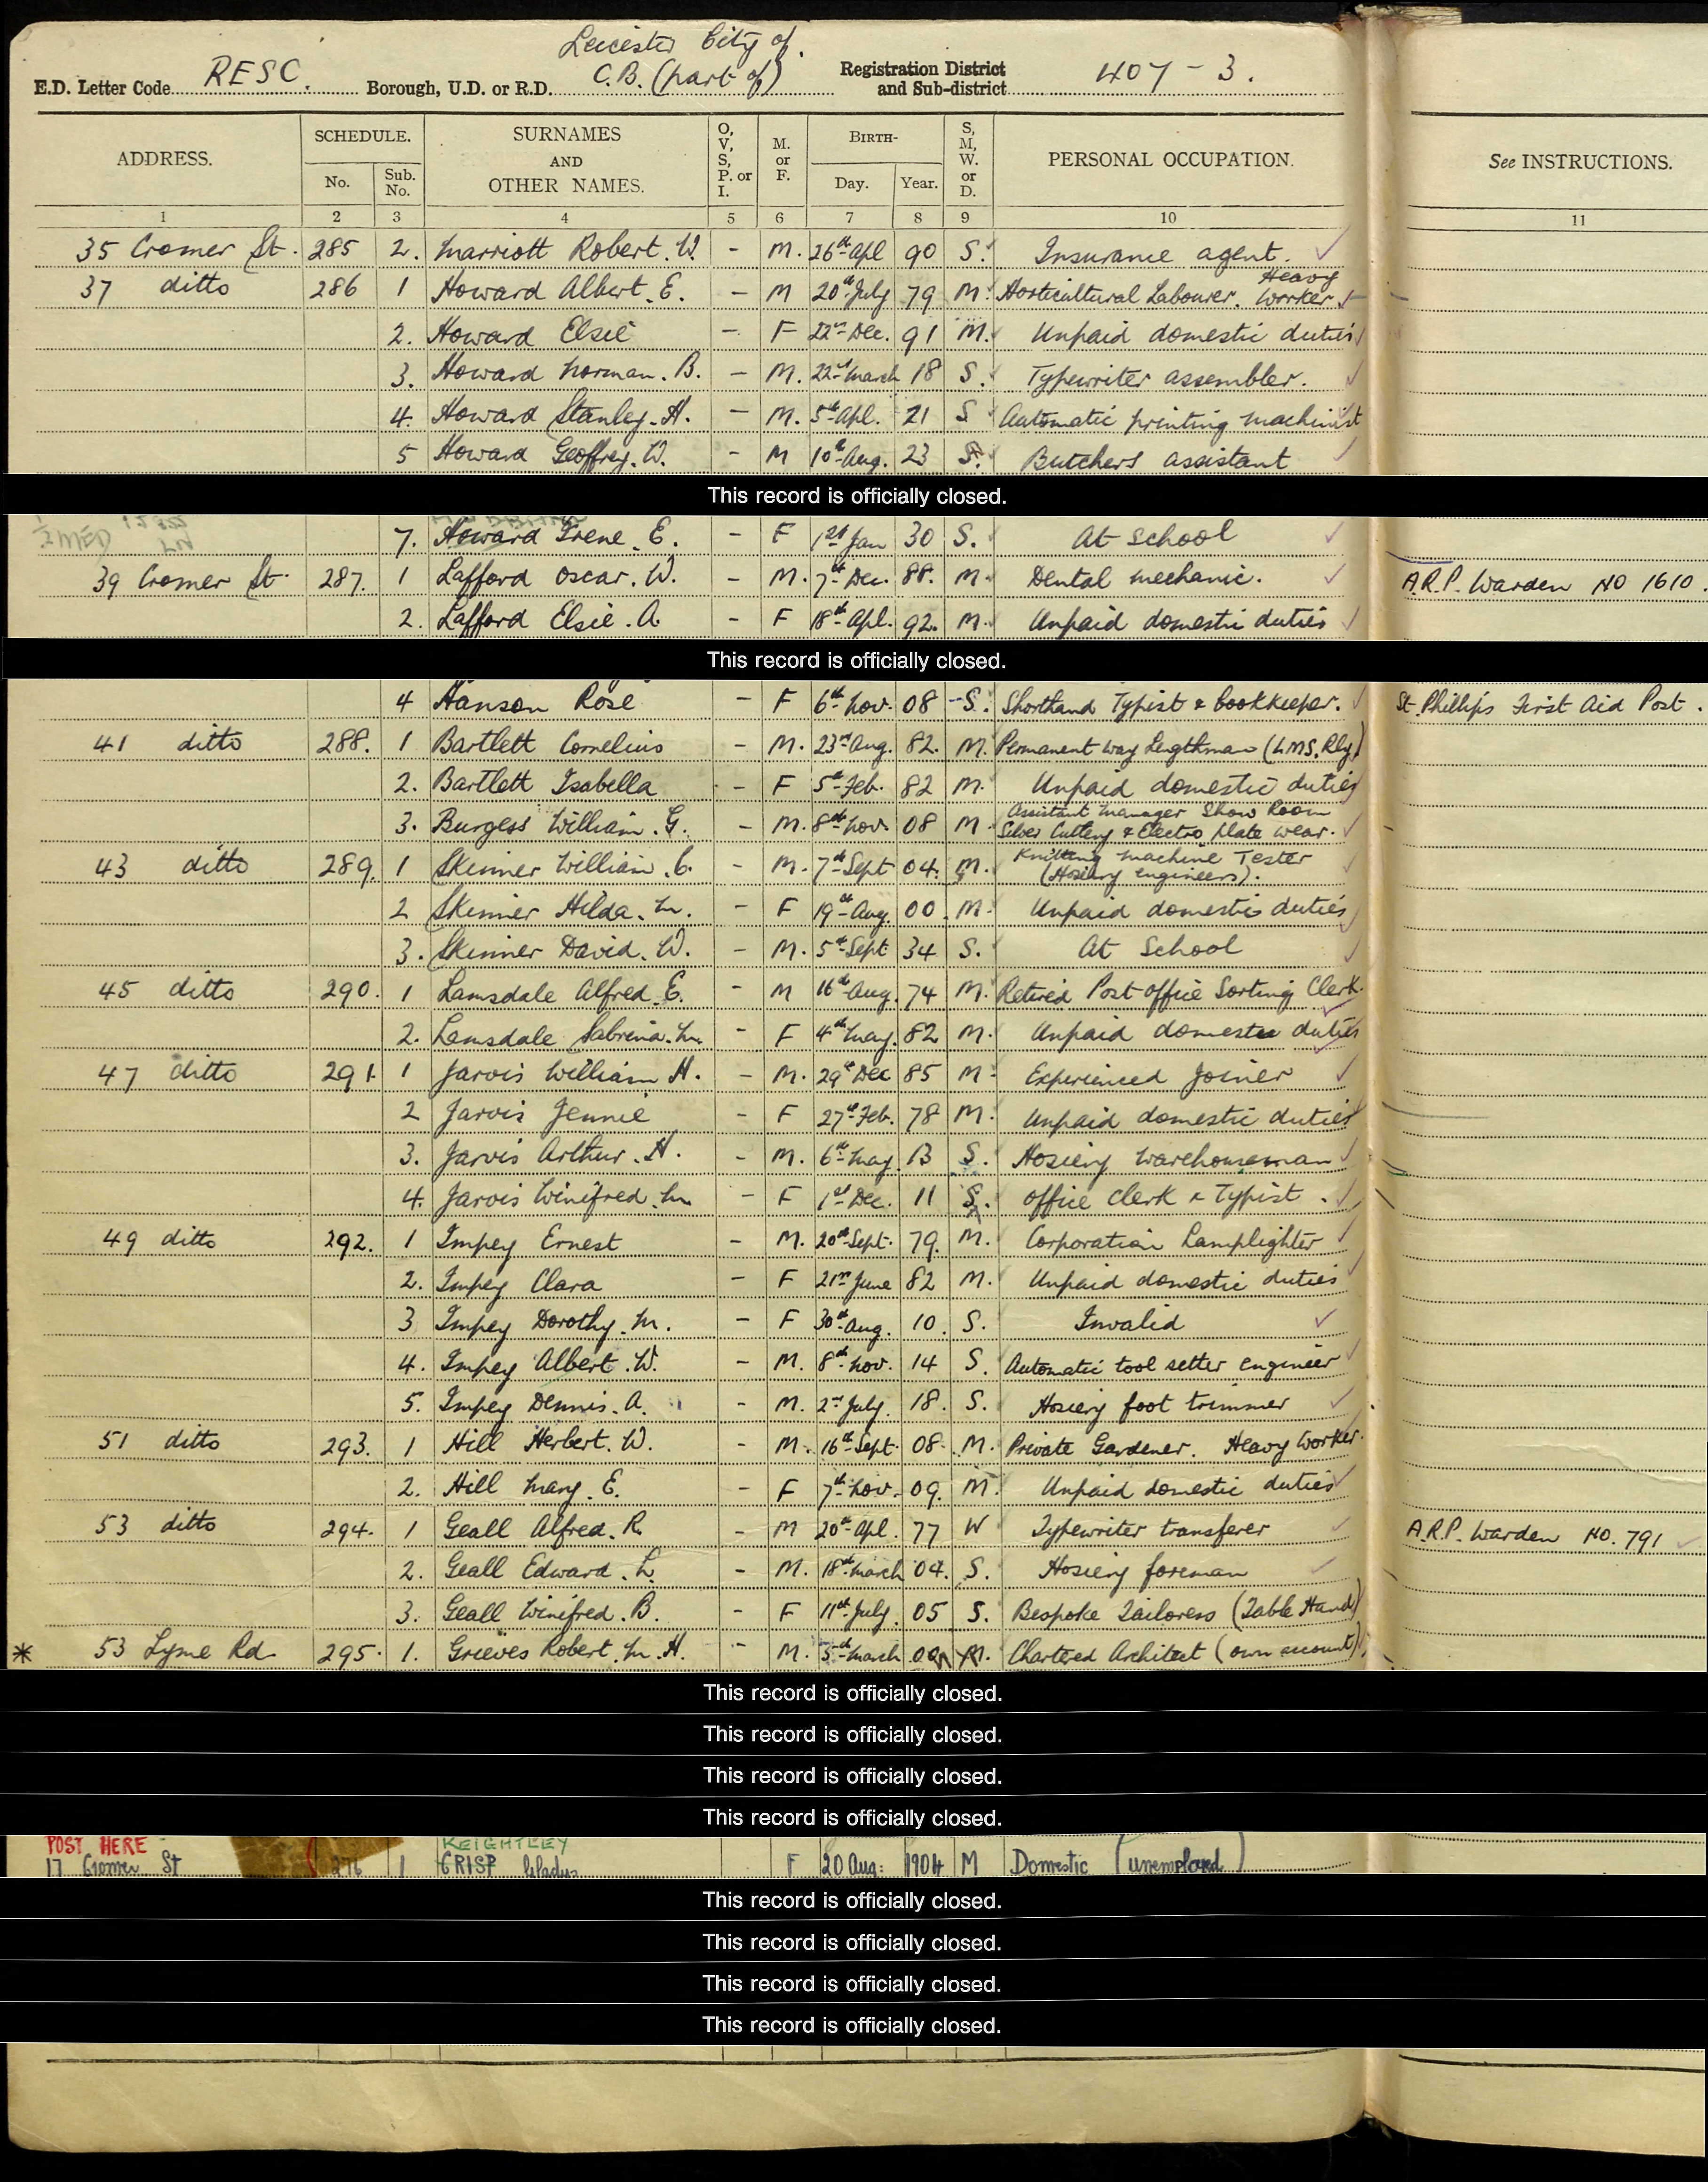 Leicester City of.
E.D. Letter Code RESC. Borough, U.D. or R.D. C.B. (part of) Registration District and Sub-district 407 - 3.
ADDRESS. SCHEDULE. No. Sub. No. SURNAMES AND OTHER NAMES. O, V, S, P. or I. M. or F. BIRTH- Day. Year. S, M, W. or D. PERSONAL OCCUPATION. See INSTRUCTIONS.
1 2 3 4 5 6 7 8 9 10 11
35 Cromer St. 285 2. Marriott Robert. W. - M. 26th Apl 90 S. Insurance agent.
37 ditto 286 1 Howard Albert. E. - M 20th July 79 M. Horticultural Labourer. Heavy Worker
2. Howard Elsie - F 22nd Dec. 91 M. Unpaid domestic duties
3. Howard Norman. B. - M. 22nd March 18 S. Typewriter assembler.
4. Howard Stanley. H. - M. 5th Apl. 21 S Automatic printing machinist
5 Howard Geoffrey. W. - M 10th Aug. 23 S. Butchers assistant
This record is officially closed.
7. Howard Irene. E. - F 1st Jan 30 S. At School
39 Cromer St. 287. 1 Lafford Oscar. W. - M. 7th Dec. 88. M. Dental mechanic. A.R.P. Warden NO 1610.
2. Lafford Elsie. A. - F 18th Apl. 92. M. Unpaid domestic duties
This record is officially closed.
4 Hanson Rose - F 6th Nov. 08 S. Shorthand Typist & bookkeeper. St. Phillips First Aid Post.
41 ditto 288. 1 Bartlett Cornelius - M. 23rd Aug. 82. M. Permanent way Lengthman (L.M.S. Rly)
2. Bartlett Isabella - F 5th Feb. 82 M. Unpaid domestic duties
3. Burgess William. G. - M. 8th Nov. 08 M. Assistant Manager Show Room Silver Cutlery & Electro plate wear.
43 ditto 289. 1 Skinner William. C. - M. 7th Sept 04. M. Knitting machine Tester (Hosiery engineers).
2 Skinner Hilda. M. - F 19th Aug. 00. M. Unpaid domestic duties
3. Skinner David. W. - M. 5th Sept 34 S. At School
45 ditto 290. 1 Lamsdale Alfred. E. - M 16th Aug. 74 M. Retired Post office Sorting Clerk.
2. Lamsdale Sabrina. M. - F 4th May. 82 M. Unpaid domestic duties
47 ditto 291. 1 Jarvis William H. - M. 29th Dec 85 M. Experienced Joiner
2 Jarvis Jennie - F 27th Feb. 78 M. Unpaid domestic duties
3. Jarvis Arthur. H. - M. 6th May 13 S. Hosiery Warehouseman
4. Jarvis Winifred. M. - F 1st Dec. 11 S. Office clerk & Typist.
49 ditto 292. 1 Impey Ernest - M. 20th Sept. 79. M. Corporation Lamplighter
2. Impey Clara - F 21st June 82 M. Unpaid domestic duties
3 Impey Dorothy. M. - F 30th Aug. 10. S. Invalid
4. Impey Albert. W. - M. 8th Nov. 14 S. Automatic tool setter engineer
5. Impey Dennis. A. - M. 2nd July. 18. S. Hosiery foot trimmer
51 ditto 293. 1 Hill Herbert. W. - M. 16th Sept. 08. M. Private Gardener. Heavy Worker.
2. Hill Mary. E. - F 7th Nov. 09. M. Unpaid domestic duties
53 ditto 294. 1 Geall Alfred. R. - M 20th Apl. 77 W Typewriter transferer A.R.P. Warden NO. 791
2. Geall Edward. L. - M. 18th March 04. S. Hosiery foreman
3. Geall Winifred. B. - F 11th July. 05 S. Bespoke Tailoress (Table Hand)
* 53 Lyme Rd. 295. 1. Greeves Robert. M. H. - M. 5th March 00 M. Chartered Architect (own account)
This record is officially closed.
This record is officially closed.
This record is officially closed.
This record is officially closed.
POST HERE KEIGHTLEY
17 Cromer St 276 1 CRISP Gladys F 20 Aug: 1904 M Domestic (unemployed)
This record is officially closed.
This record is officially closed.
This record is officially closed.
This record is officially closed.